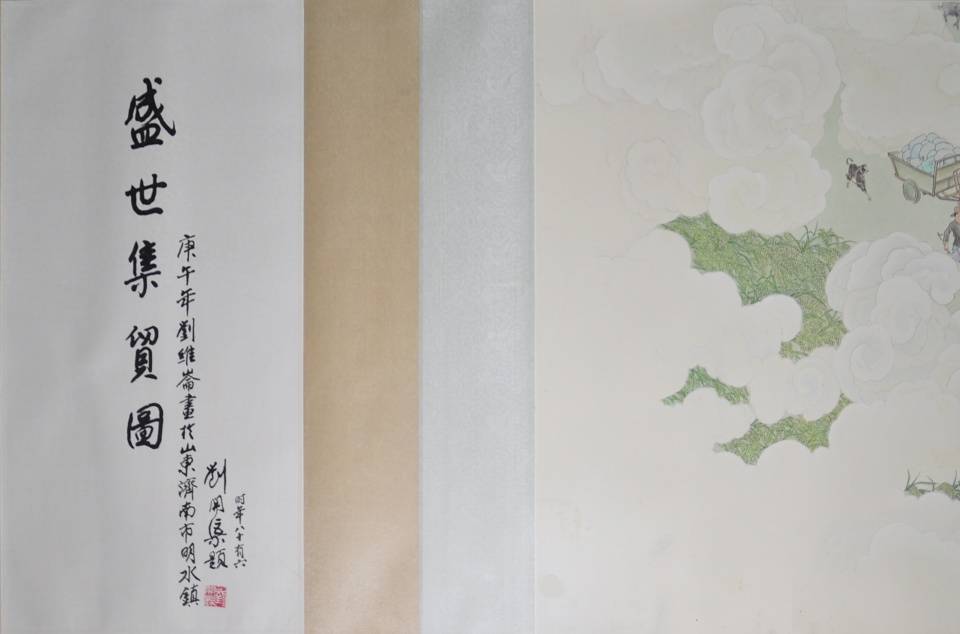 盛世集貿圖
庚午年劉維崙畫於山東濟南市明水鎮
劉開渠題
时年八十有六